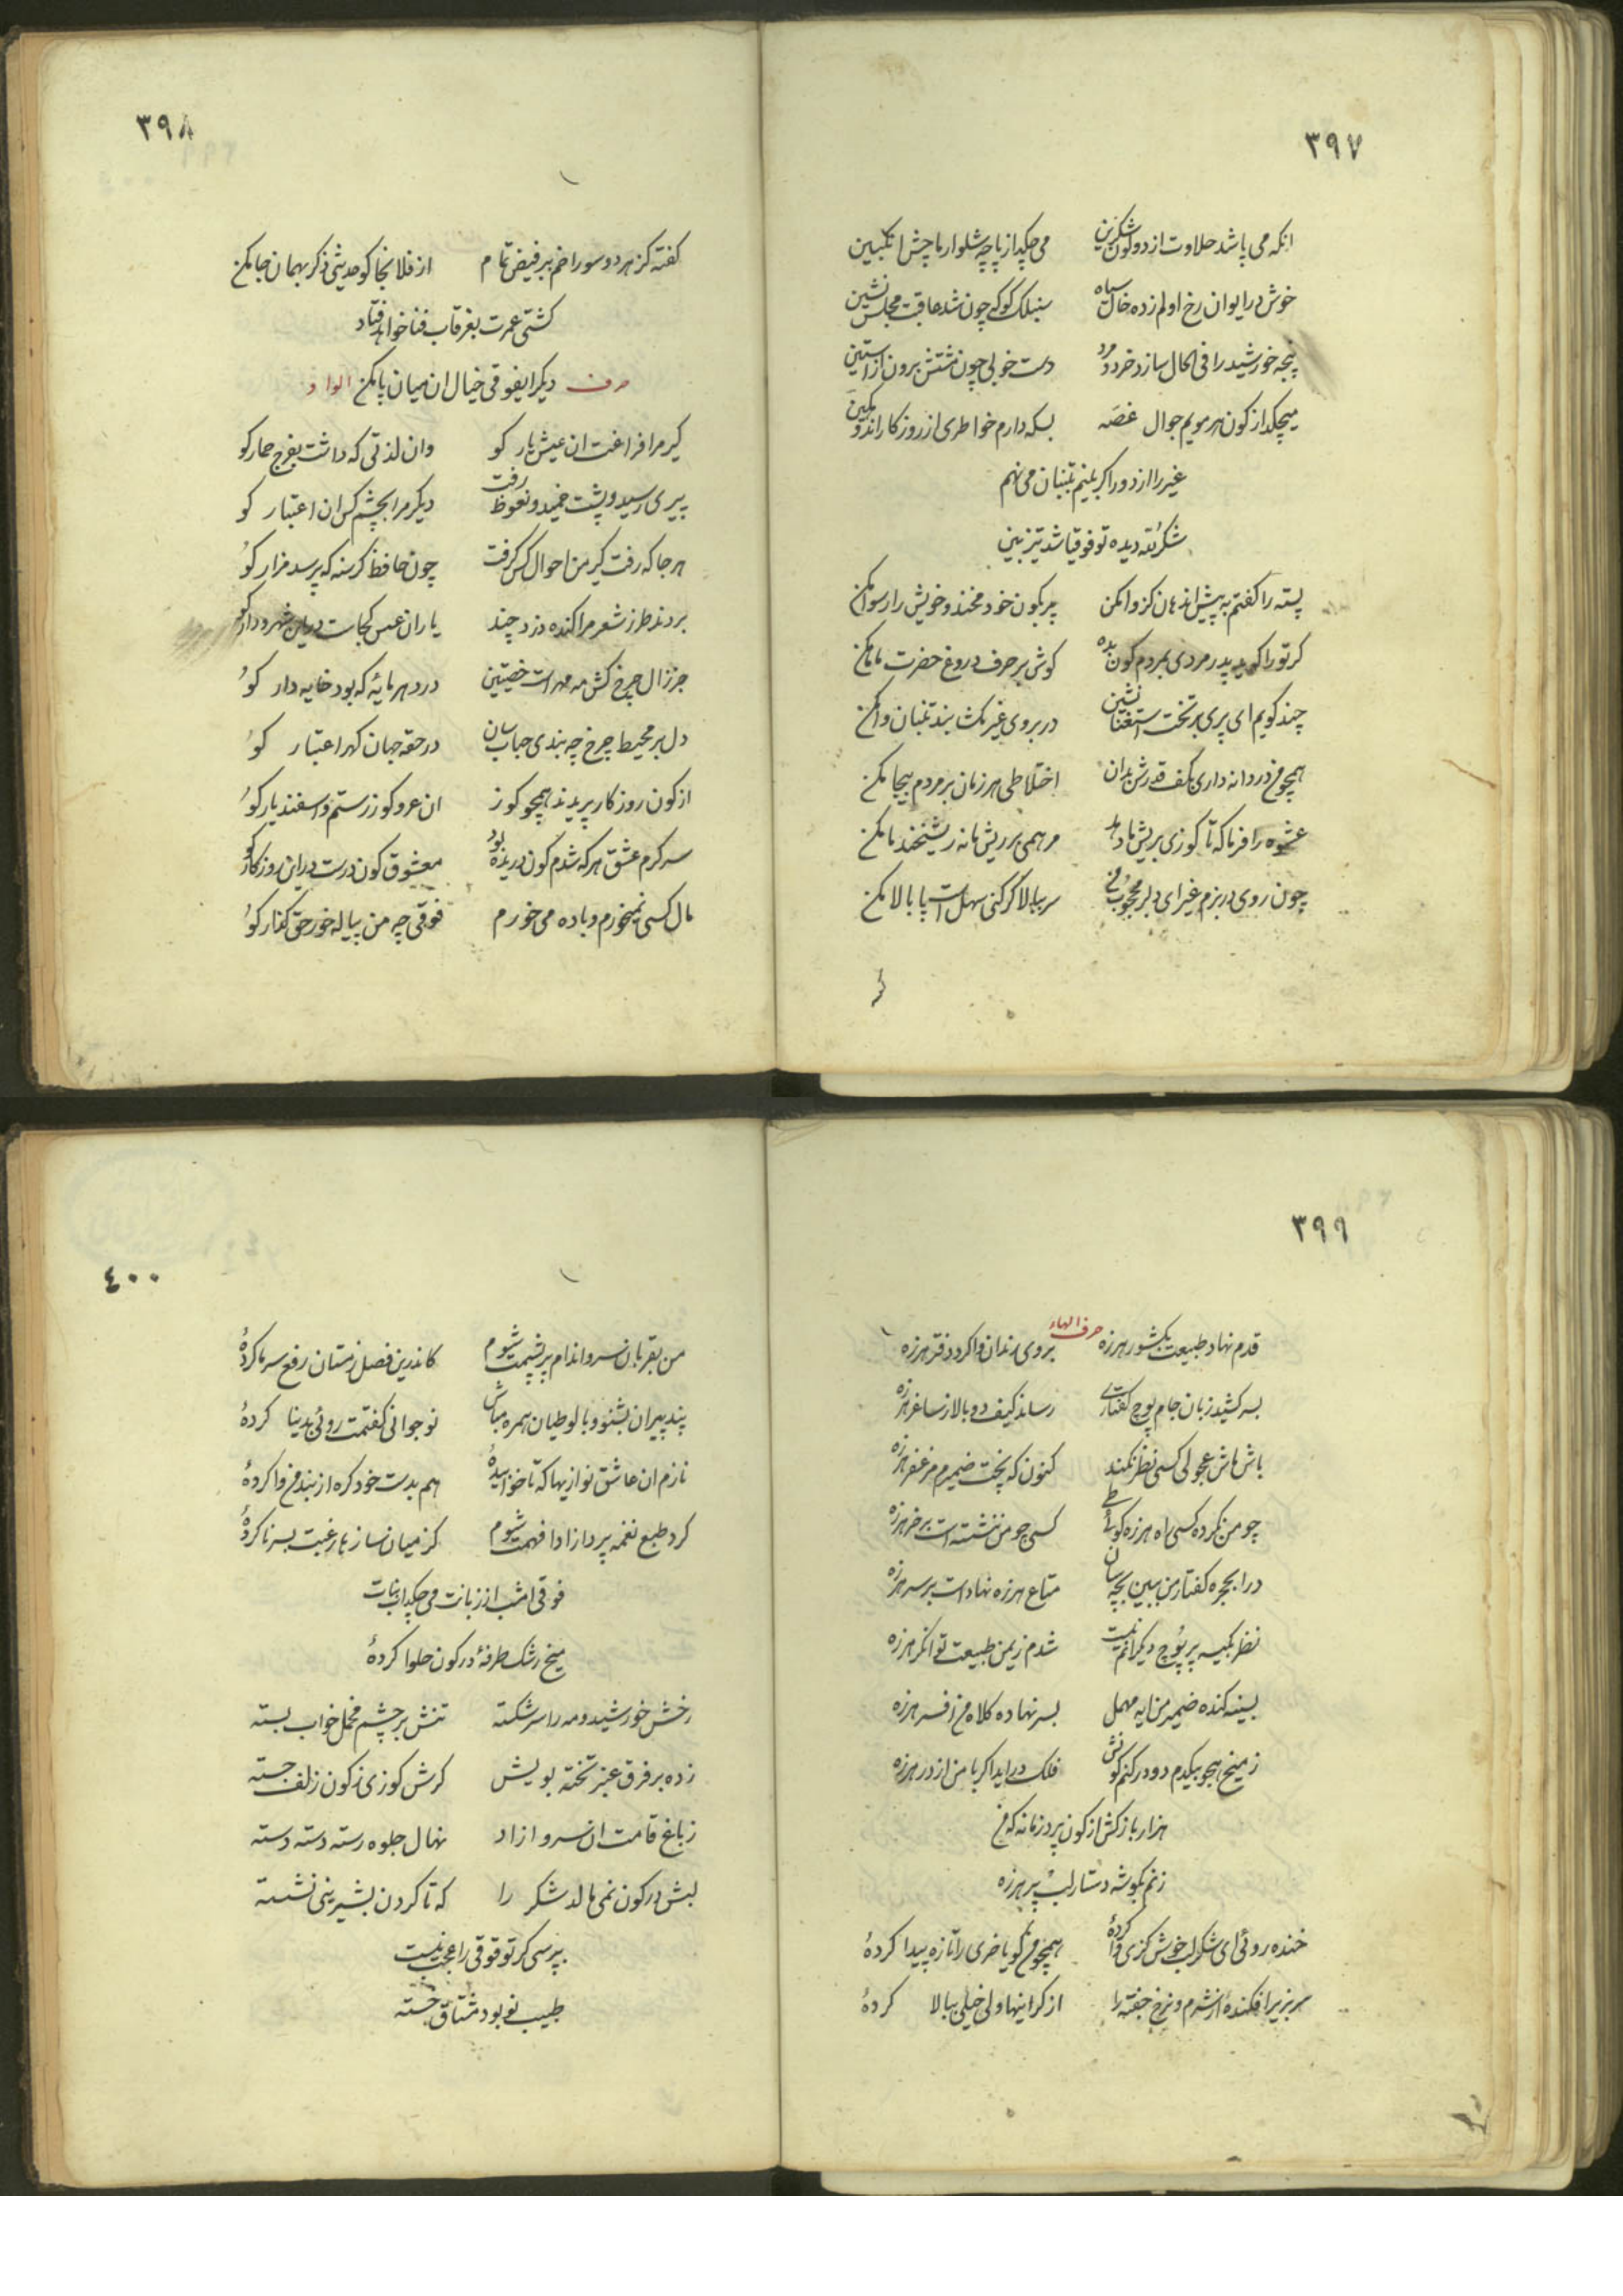 ۳۹۷
انکه می پاشد حلاوت از دو کون شکرین می چکد از پاچه شلوار پاچش انکبین
خوش در ایوان رخ او لم زده خال سیاه سنبلک کوکه چون شد عاقبت مجلس نشین
پنجه خورشید را فی الحال سازد خرد و مرد دست خوبی چون مشتش برون از استین
میچکد از کون هر مویم جوال غصه بسکه دارم خواطری از روزکار اندوهکین
غیر را از دور اکر بینم بتنبان می نهم
شکر لله دیده تو فوقیا شد تیزبین
پسته را کفتم به پیش اندهان کز وا مکن پر بکون خود مخند و خویش را رسوا مکن
کر تو را کوید پدر مردی بمردم کون بده کوش بر حرف دروغ حضرت بابا مکن
چند کویم ای پری بر تخت استغنا نشین در بروی غیر مکشا بند تنبان وا مکن
همچو من دردانه داری بکف قدرش بدان اختلاطی هر زمان بر مردم بیجا مکن
عشوه را فرما که تا کوزی بریش ما دهد مرهمی بر ریش ما نه ریشخند ما مکن
چون روی در بزم غیر ای دلبر محجوب من سر ببالا کر کنی سهل است پا بالا مکن
۳۹۸
کفته کز هر دو سوراخم ببر فیض تمام از فلانجا کو حدیثی ذکر بهمان جا مکن
کشتی عمرت بغرقاب فنا خواهد فتاد
دیکر ایفوقی خیال ان میان پا مکن
حرف الواو
کیر مرا فراغت ان عیش پار کو وان لذتی که داشت بفرج حمار کو
پیری رسید و پشت خمید و نعوظ رفت دیکر مرا بچشم کس ان اعتبار کو
هر جا که رفت کیر من احوال کس کرفت چون حافظ کرسنه که پرسد مزار کو
بردند طرز شعر مرا کنده دزد چند یاران عسس کجاست در این شهر و دار کو
جز زال چرخ کش مه و مهر است خصیتین در دهر مایهٔ که بود خایه دار کو
دل بر محیط چرخ چه بندی حباب سان در حقه جهان کهر اعتبار کو
از کون روزکار پریدند همچو کوز ان عر و کوز رستم و اسفندیار کو
سر کرم عشق هر که شدم کون دریده بود معشوق کون درست در این روزکار کو
مال کسی نمیخورم و باده می خورم فوقی چه من پیاله خور حق کذار کو
۳۹۹
حرف الهاء
قدم نهاد طبیعت بکشور هرزه بروی رندان وا کرد دفتر هرزه
بسر کشید زبان جام پوچ کفتاری رساند کیف دو بالا ز ساغر هرزه
باش ماش عجولی کسی نظر نکند کنون که پخت ضمیرم مزعفر هرزه
چو من نکرده کسی راه هرزه کوئی طی کسی چو من ننشسته است بر خر هرزه
درا بحجره کفتار من ببین بچه سان متاع هرزه نهاد است بر سر هرزه
نظر بکیسه پر پوچ دیکرانم نیست شدم ز یمن طبیعت توانکر هرزه
بسینه کنده ضمیر من ایه مهمل بسر نهاده کلاه من افسر هرزه
ز میخ هجو بیکدم دو در کنم کونش فلک در اید اکر با من از در هرزه
هزار باز کش از کون پرد زمانه که من
زنم بکوشه دستار لب پر هرزه
خنده روئی ای شکر لب خوش کزی وا کردهٔ همچو من کویا خری را تازه پیدا کردهٔ
سر بزیر افکندهٔ از شرم و نرخ جفته را از کرانیها ولی خیلی ببالا کردهٔ
۴۰۰
من بقربان سرو اندام پر پشمت شوم کاندرین فصل زمستان رفع سرما کردهٔ
پند پیران بشنو و با لوطیان همره مباش نوجوانی کفتمت روئی بدنیا کردهٔ
نازم ان عاشق نوازیها که تا خوابیدهٔ هم بدست خود کره از بند من وا کردهٔ
کرد طبع نغمه پرداز ادا فهمت شوم کز میان سازها رغبت بسرنا کردهٔ
فوقی امشب از زبانت می چکد اب نبات
میخ رشک طرفهٔ در کون حلوا کردهٔ
رخش خورشید و مه را سر شکسته تنش بر چشم مخمل خواب بسته
زده بر فرق عنبر تخته بویش کرش کوزی ز کون زلف جسته
ز باغ قامت ان سرو ازاد نهال جلوه رسته دسته دسته
لبش در کون نمی مالد شکر را که تا کردن بشیرینی نشسته
بپرسی کر تو فوقی را عجب نیست
طبیب نو بود مشتاق خسته